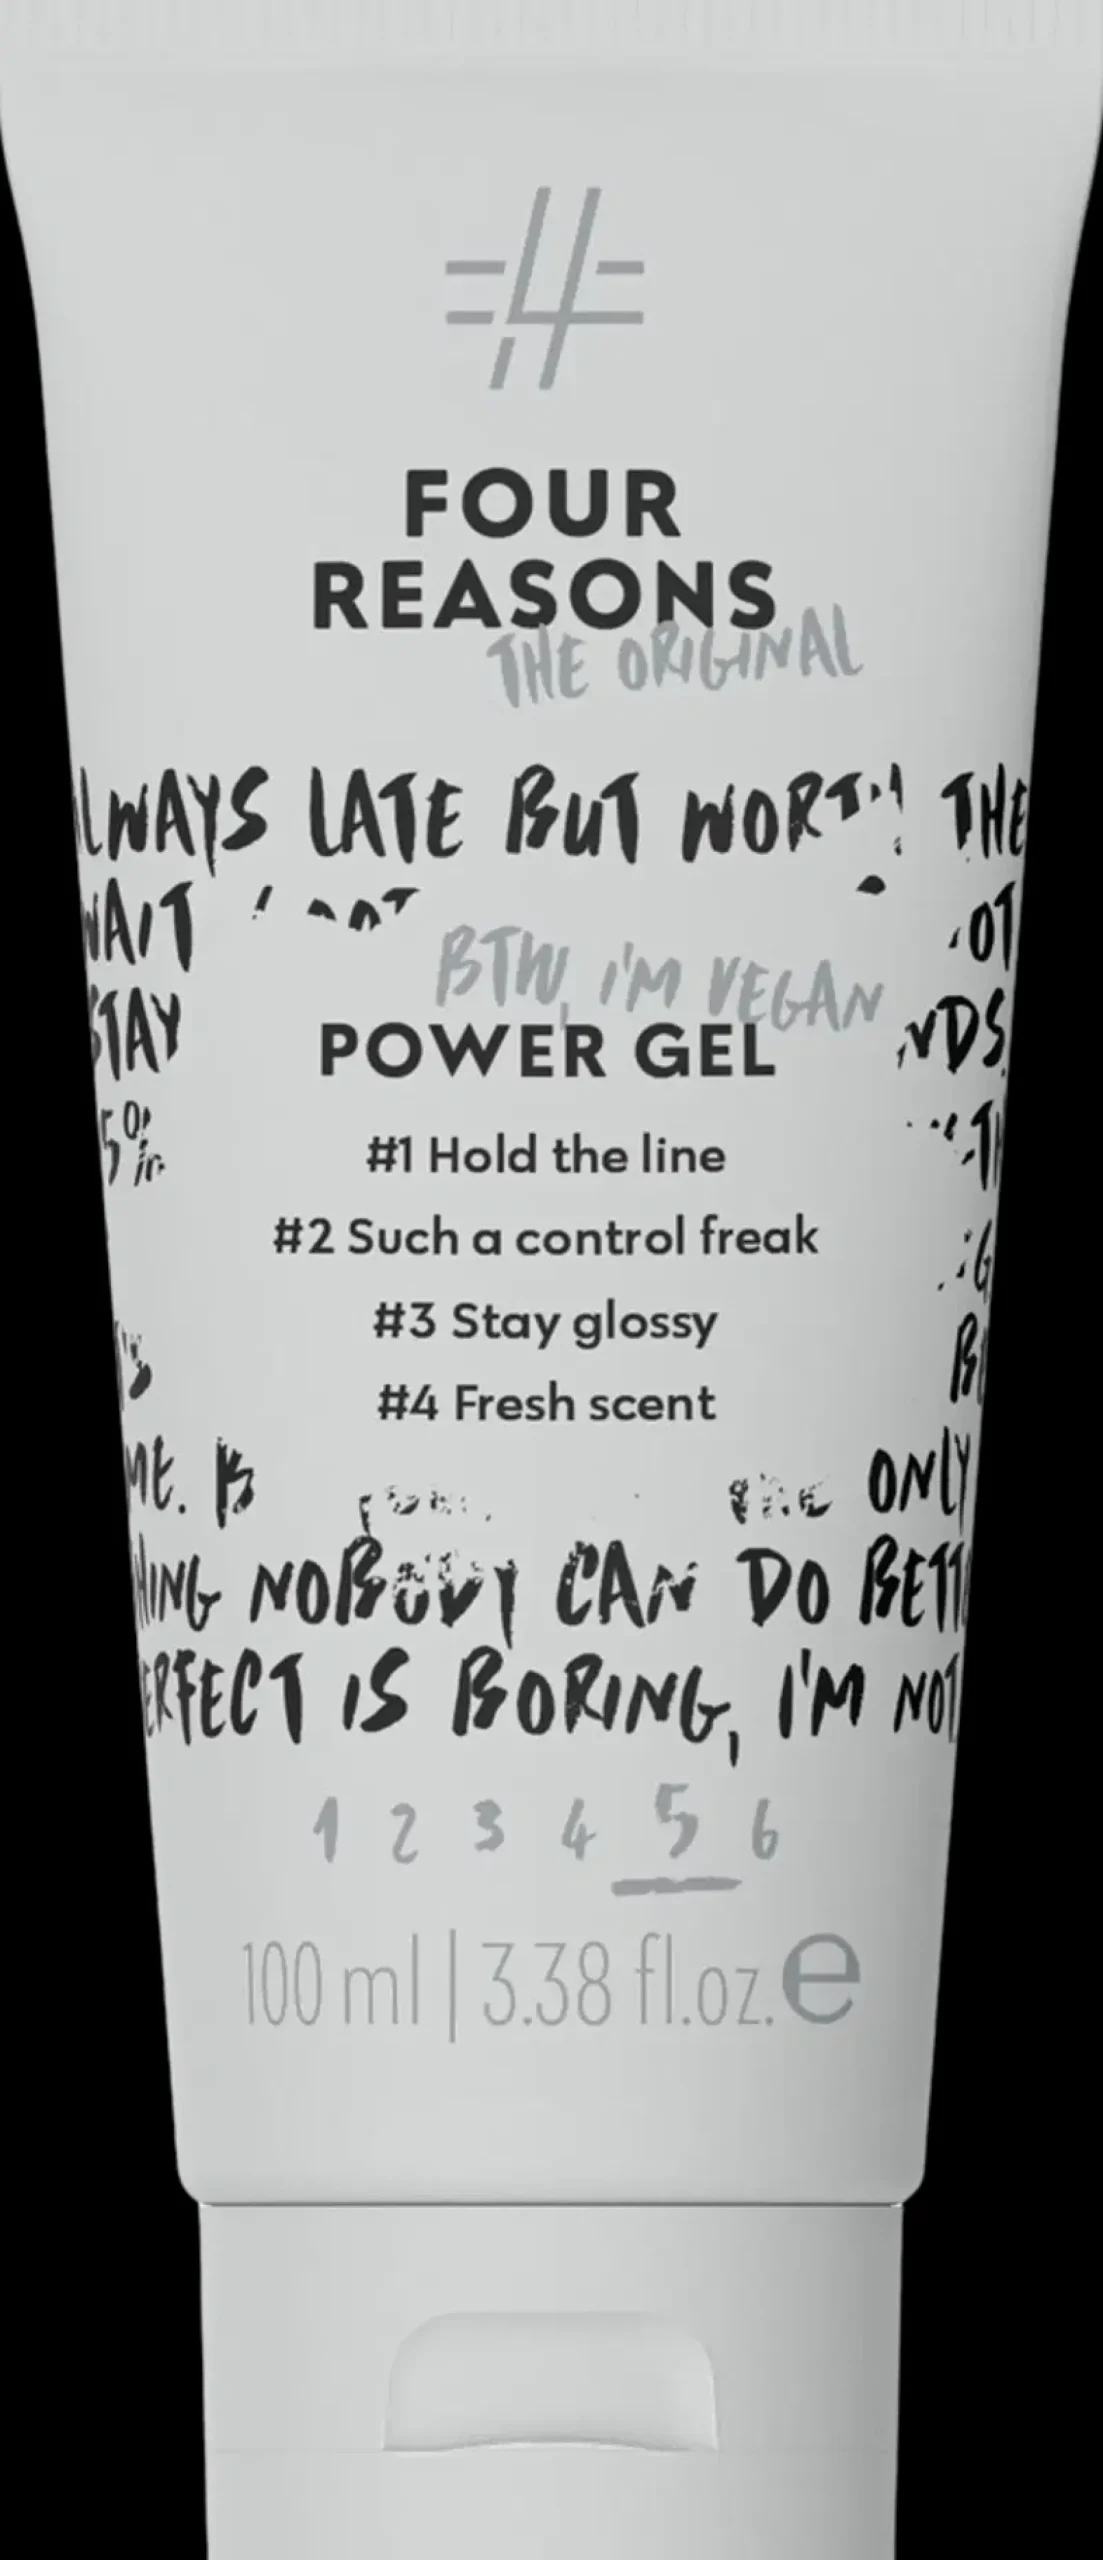 FOUR
REASONS
THE ORIGINAL
LWAYS LATE BUT WORTH THE
WAIT
BTW, I'M VEGAN
OT
STAY
NDS.
POWER GEL
5%
#1 Hold the line
#2 Such a control freak
#3 Stay glossy
#4 Fresh scent
ME.
THE ONLY
HING NOBODY CAN DO BETT
ERFECT IS BORING, I'M NOT
1 2 3 4 5 6
100 ml | 3.38 fl.oz. e